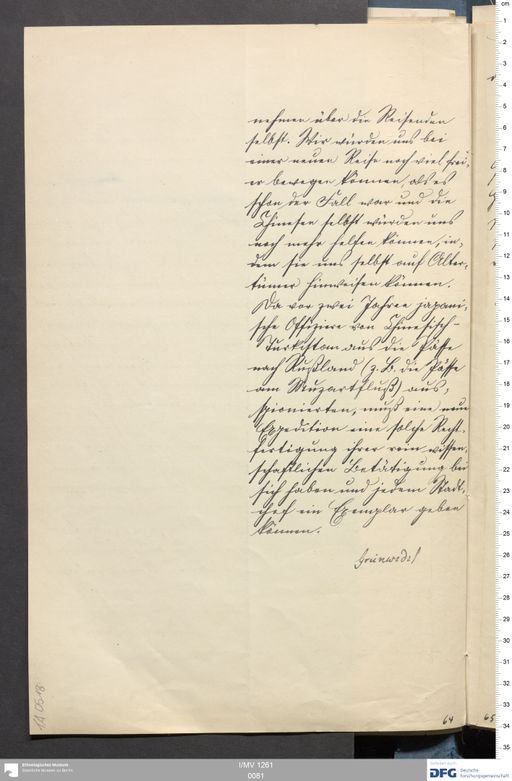 nehmen über die Reisenden
selbst. Wir würden uns bei
einer neuen Reise noch viel frei-
er bewegen können, als es
schon der Fall war und die
Chinesen selbst würden uns
noch mehr helfen können, in-
dem sie uns selbst auf Alter-
tümer hinweisen können.
Da vor zwei Jahren japani-
sche Offiziere von Chinesisch-
Turkistan aus die Pässe
nach Rußland (z. B. die Pässe
am Muzartfluß) aus-
spionierten, muß eine neue
Expedition eine solche Recht-
fertigung ihrer rein wissen-
schaftlichen Betätigung bei
sich haben und jedem Stadt-
chef ein Exemplar geben
können.
Grünwedel
64
65
I/MV 1261
0081
Ethnologisches Museum
Staatliche Museen zu Berlin
Gefördert durch
DFG Deutsche
Forschungsgemeinschaft
cm
1
2
3
4
5
6
7
8
9
10
11
12
13
14
15
16
17
18
19
20
21
22
23
24
25
26
27
28
29
30
31
32
33
34
35